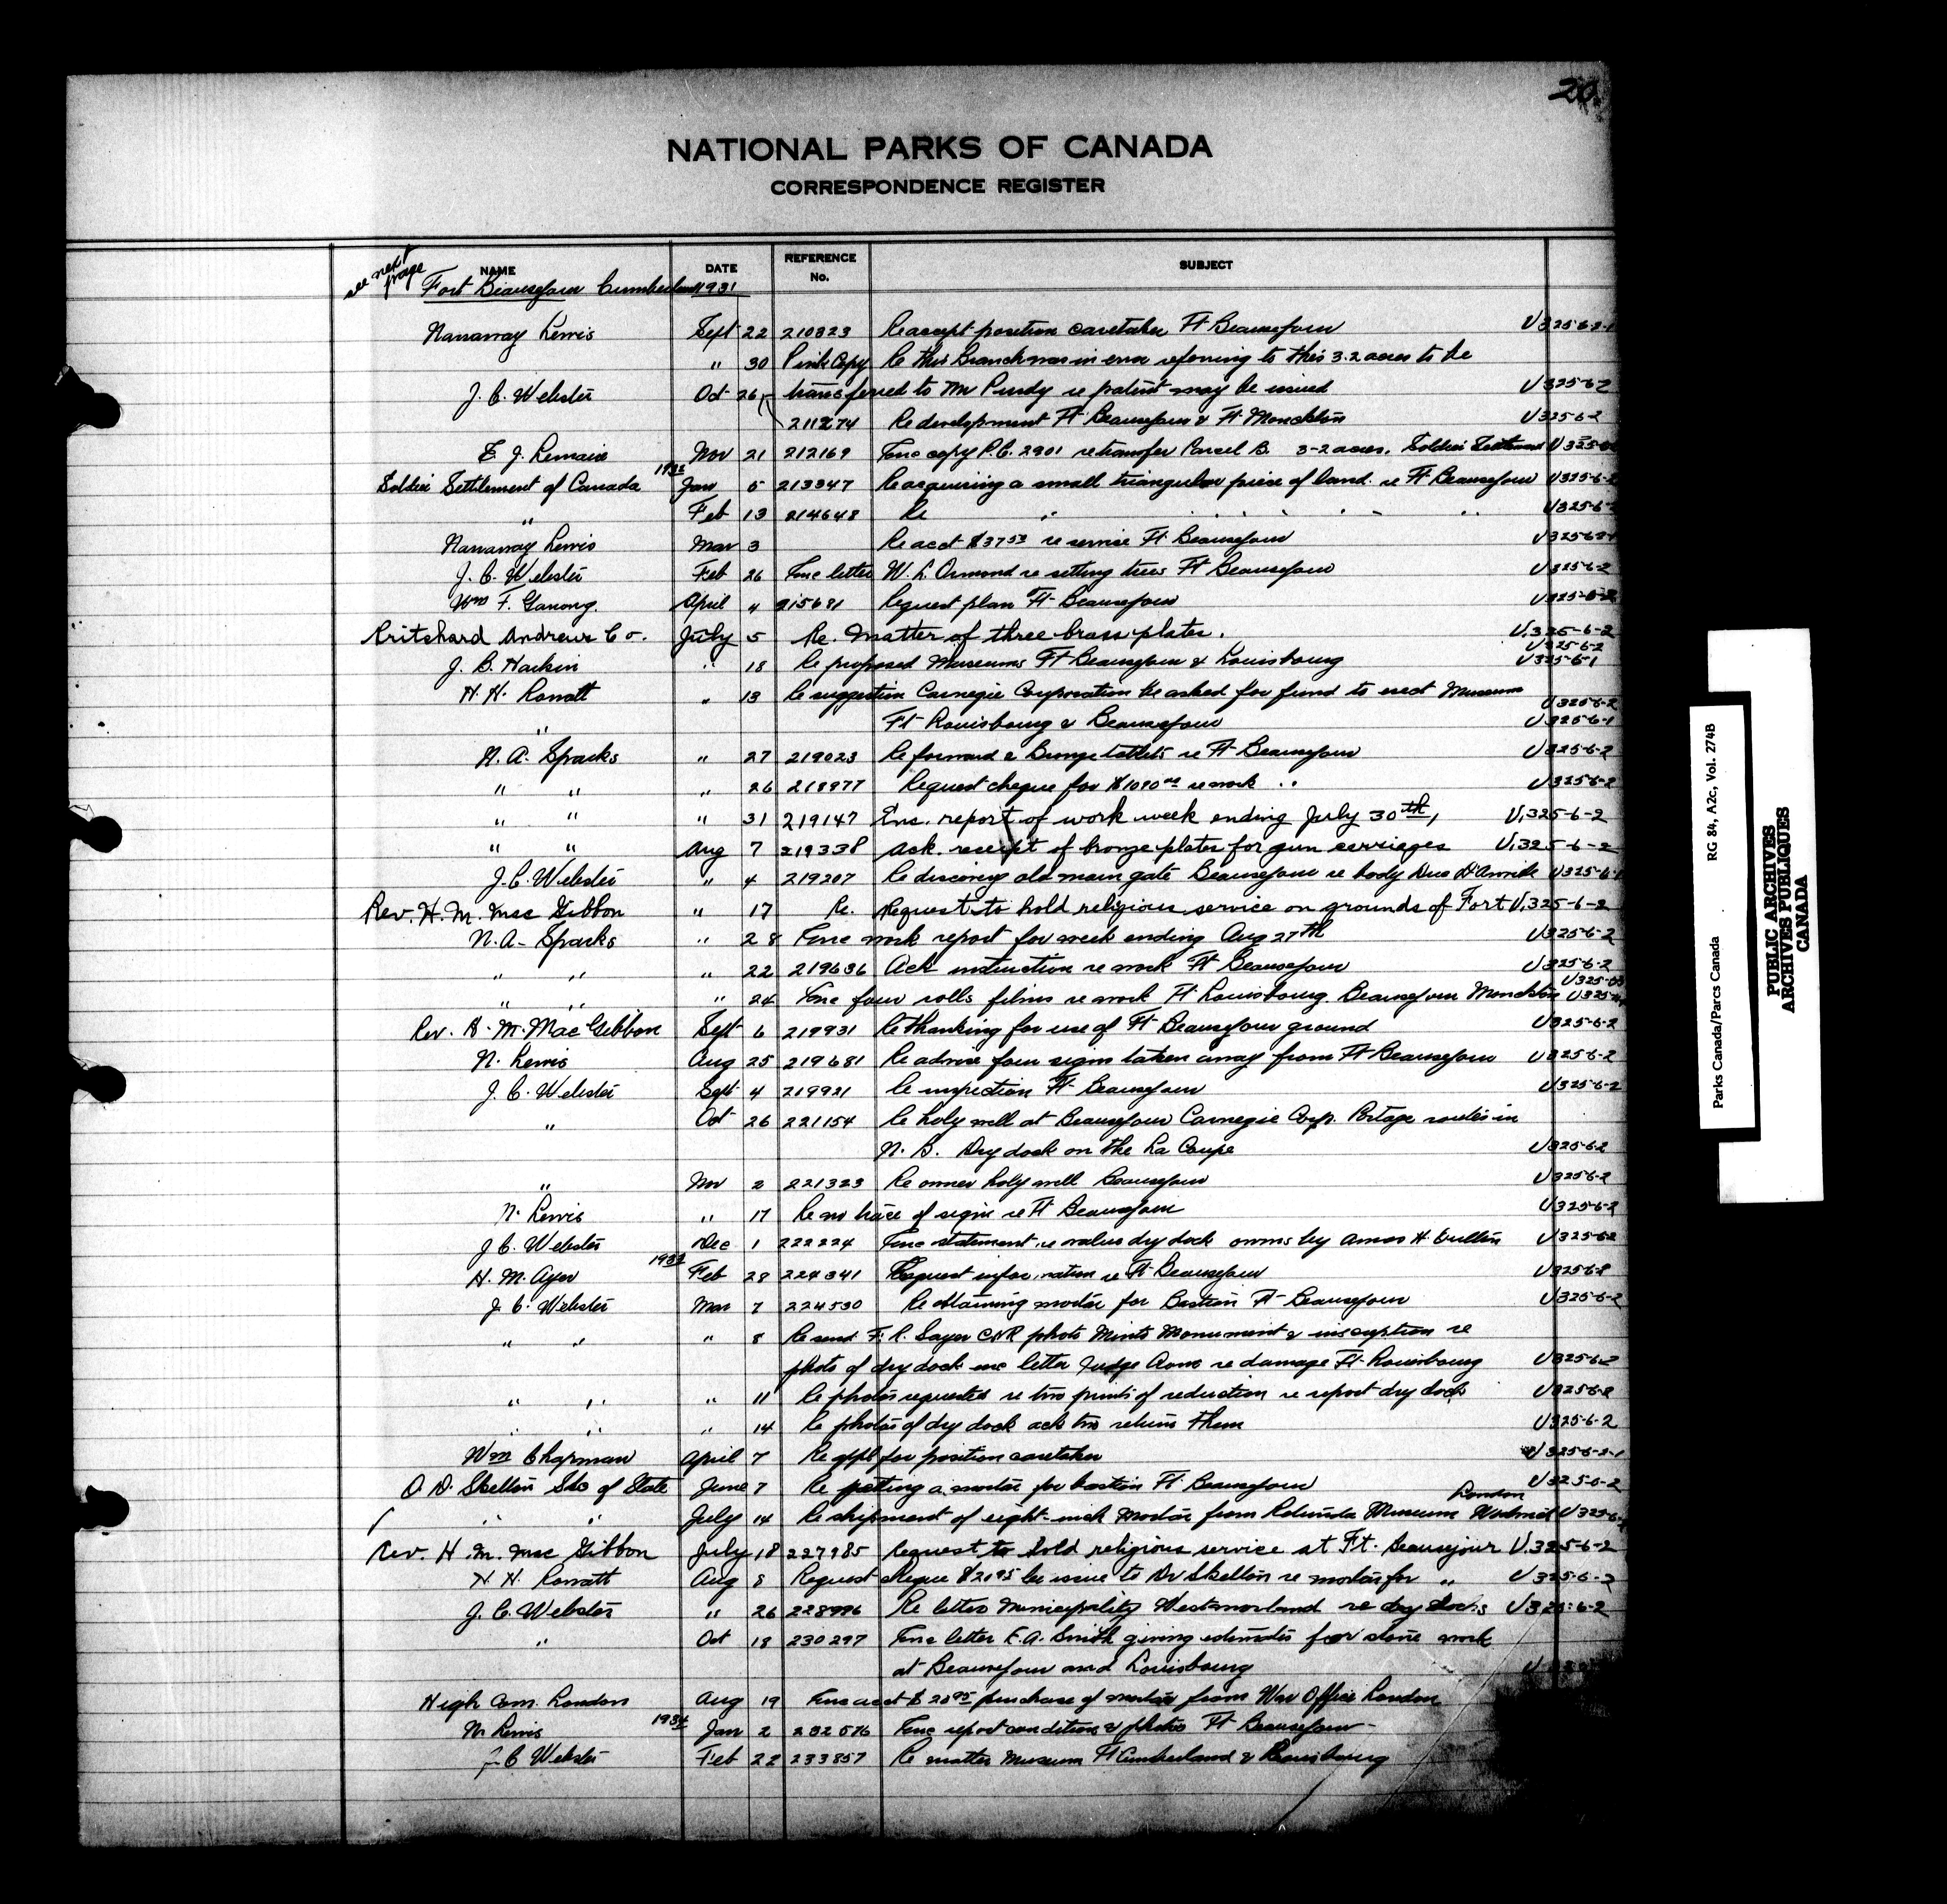 20.
NATIONAL PARKS OF CANADA
CORRESPONDENCE REGISTER
see next page
NAME DATE REFERENCE No. SUBJECT
Fort Beausejour Cumberland 1931
Nanaway Lewis Sept 22 210323 Re accept position caretaker Ft Beausejour U325-6-2-1
" 30 Pink Copy Re this Branch was in error referring to this 3.2 acres to be
J. C. Webster Oct 26 transferred to Mr Purdy re patent may be issued U325-6-2
211274 Re development Ft Beausejour & Ft Monckton U325-6-2
E. J. Lemaire Nov 21 212169 Enc copy P.C. 2901 re transfer Parcel B. 3-2 acres. Soldier Settlement U325-6-2
Soldier Settlement of Canada 1932 Jan 5 213347 Re acquiring a small triangular piece of land. re Ft Beausejour U325-6-2
" Feb 13 214648 Re " " " " " " U325-6-2
Nanaway Lewis Mar 3 Re acct $37 53 re service Ft Beausejour U325-6-2-1
J. C. Webster Feb 26 Enc letter W. L. Ormond re setting trees Ft Beausejour U325-6-2
Wm F. Ganong. April 4 215681 Request plan Ft Beausejour U325-6-2
Pritchard Andrews Co. July 5 Re. matter of three brass plates. U.325-6-2
U325-6-2
J. B. Harkin " 18 Re proposed Museums Ft Beausejour & Louisbourg U325-6-1
H. H. Rowatt " 13 Re suggestion Carnegie Corporation be asked for fund to erect Museum
U325-6-2
" Ft Louisbourg & Beausejour U325-6-1
N. A. Sparks " 27 219023 Re forward a Bronze tablets re Ft Beausejour U325-6-2
" " " 26 218977 Request cheque for $1090 re work " U325-6-2
" " " 31 219147 Enc. report of work week ending July 30th, U,325-6-2
" " Aug 7 219338 Ack. receipt of bronze plates for gun carriages U,325-6-2
J. C. Webster " 4 219207 Re discovery old main gate Beausejour re body Duc D'Anville U325-6-1
Rev. H. M. Mac Gibbon " 17 Re. Request to hold religious service on grounds of Fort U,325-6-2
N. A- Sparks " 28 Enc work report for week ending Aug 27th U325-6-2
" " " 22 219636 Ack instruction re work Ft Beausejour U325-6-2
" " " 24 Enc four rolls films re work Ft Louisbourg Beausejour Monckton
Rev. H. M. MacGibbon Sept 6 219931 Re thanking for use of Ft Beausejour ground U325-6-2
N. Lewis Aug 25 219681 Re advise four signs taken away from Ft Beausejour U325-6-2
J. C. Webster Sept 4 219921 Re inspection Ft Beausejour U325-6-2
" Oct 26 221154 Re holy well at Beausejour Carnegie Corp. Portage routes in
N. B. Dry dock on the La Coupe U325-6-2
" Nov 2 221323 Re owner holy well Beausejour U325-6-2
N. Lewis " 17 Re no trace of signs re Ft Beausejour U325-6-2
J. C. Webster Dec 1 222224 Enc statement re value dry dock owns by Amos H. U325-6-2
H. M. Ayer 1933 Feb 28 224341 Request information re Ft Beausejour U325-6-2
J. C. Webster Mar 7 224530 Re obtaining mortar for Bastion Ft Beausejour U325-6-2
" " " 8 Re send F. L. Sayer CNR photo Monument & inscription re
photo of dry dock enc letter Judge re damage Ft Louisbourg U325-6-2
" " " 11 Re photos requested re two prints of reduction re report dry dock U325-6-2
" " " 14 Re photos of dry dock ack two return them U325-6-2
Wm Chapman April 7 Re appl for position caretaker U325-6-2-1
O. D. Skelton Sec of State June 7 Re getting a mortar for bastion Ft Beausejour U325-6-2
London
" " July 14 Re shipment of eight-inch Mortar from Rotunda Museum Woolwich
Rev. H. M. Mac Gibbon July 18 227985 Request to hold religious service at Ft. Beausejour U.325-6-2
H. H. Rowatt Aug 8 Request cheque $2095 be issue to Dr Skelton re mortar for " U325-6-2
J. C. Webster " 26 228996 Re letter Municipality Westmorland re dry docks U325-6-2
" Oct 18 230297 Enc letter E. A. Smith giving estimates for stone work
at Beausejour and Louisbourg
High Com. London Aug 19 Enc acct $ 20 95 purchase of mortar from War Office London
N. Lewis 1934 Jan 2 232576 Enc report condition & photos Ft Beausejour-
J C Webster Feb 22 233857 Re matter Museum Ft Cumberland & Louisbourg
Parks Canada/Parcs Canada RG 84, A2c, Vol. 274B
PUBLIC ARCHIVES
ARCHIVES PUBLIQUES
CANADA